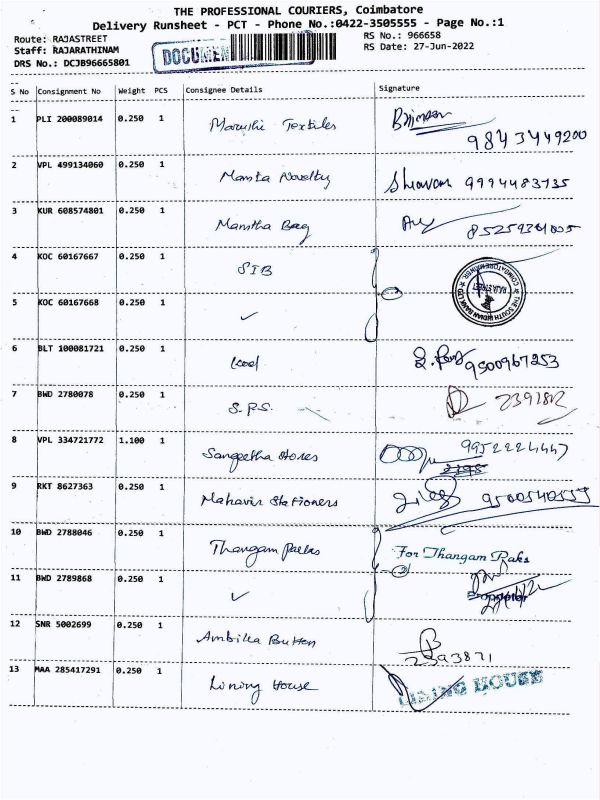 THE PROFESSIONAL COURIERS, Coimbatore
Delivery Runsheet - PCT - Phone No.:0422-3505555 - Page No.:1
Route: RAJASTREET
RS No.: 966658
Staff: RAJARATHINAM
RS Date: 27-Jun-2022
DRS No.: DCJB96665801
DOCUMEN
S No Consignment No Weight PCS Consignee Details Signature
1 PLI 200089014 0.250 1 Maruthi Textiles
9843449200
2 VPL 499134060 0.250 1 Mamta Novelty Shravan 9994483735
3 KUR 608574801 0.250 1 Mamtha Bag
4 KOC 60167667 0.250 1 SIB
THE SOUTH INDIAN BANK LTD
COIMBATORE
RAJA STREET
5 KOC 60167668 0.250 1 ✓
6 BLT 100081721 0.250 1 9500967253
7 BWD 2780078 0.250 1 S.P.S.
8 VPL 334721772 1.100 1 Sangeetha Stores 9952224447
9 RKT 8627363 0.250 1 Mahavir Stationers 9500540555
10 BWD 2788046 0.250 1 Thangam For Thangam Raks
11 BWD 2789868 0.250 1 ✓
Proprietor
12 SNR 5002699 0.250 1 Ambika Button
2393871
13 MAA 285417291 0.250 1 Lining House LINING HOUSE